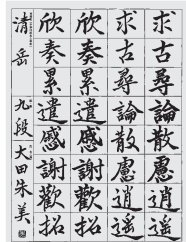 求古尋論散慮逍遥
求古尋論散慮逍遥
欣奏累遣感謝歡招
欣奏累遣感謝歡招
清岳
九段 大田朱美